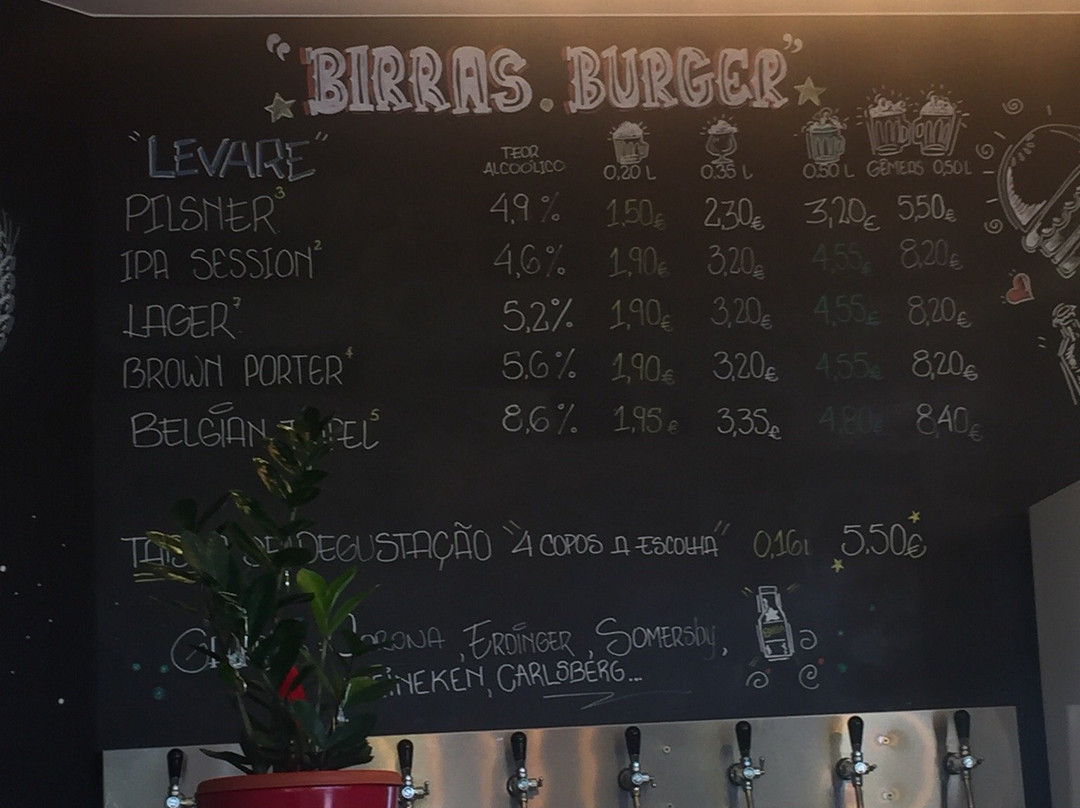 "BIRRAS. BURGER"
"LEVARE" TEOR ALCOÓLICO 0,20 L 0,35 L 0,50 L GÉMEAS 0,50L
PILSNER³ 4,9% 1,50€ 2,30€ 3,20€ 5,50€
IPA SESSION² 4,6% 1,90€ 3,20€ 4,55€ 8,20€
LAGER⁷ 5,2% 1,90€ 3,20€ 4,55€ 8,20€
BROWN PORTER⁴ 5,6% 1,90€ 3,20€ 4,55€ 8,20€
BELGIAN 8,6% 1,95€ 3,35€ 4,80€ 8,40€
DEGUSTAÇÃO "4 COPOS A ESCOLHA" 0,16l 5.50€
, ERDINGER, SOMERSBY,
CARLSBERG...